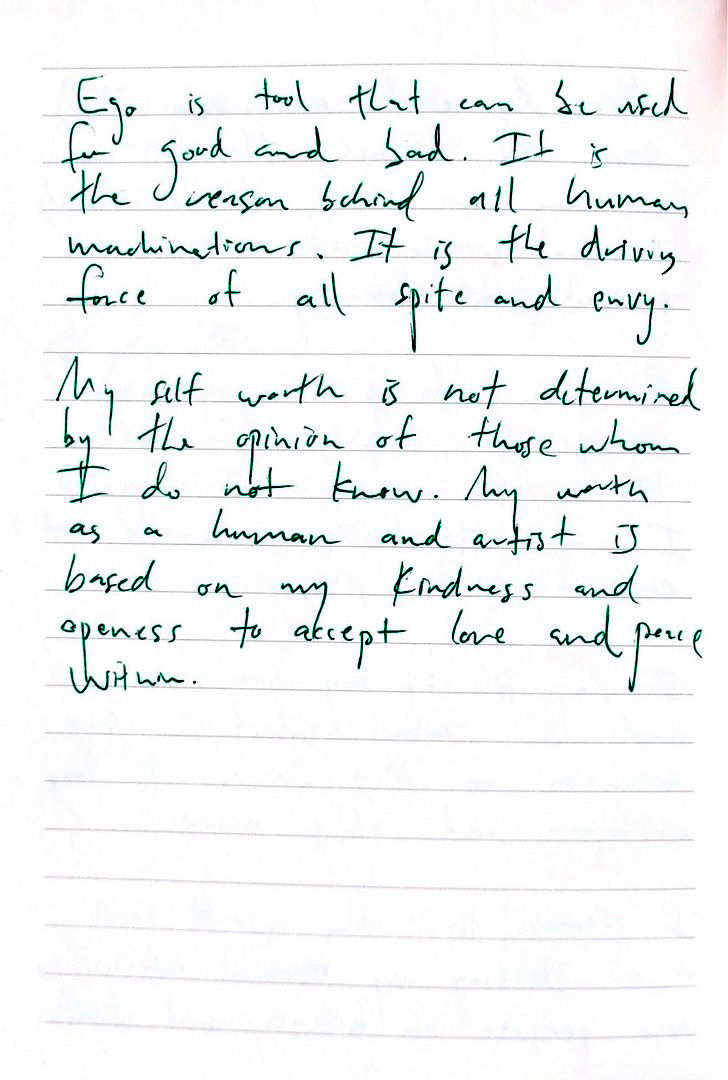 Ego is tool that can be used
for good and bad. It is
the reason behind all human
machinations. It is the driving
force of all spite and envy.
My self worth is not determined
by the opinion of those whom
I do not know. My worth
as a human and artist is
based on my kindness and
openess to accept love and peace
within.